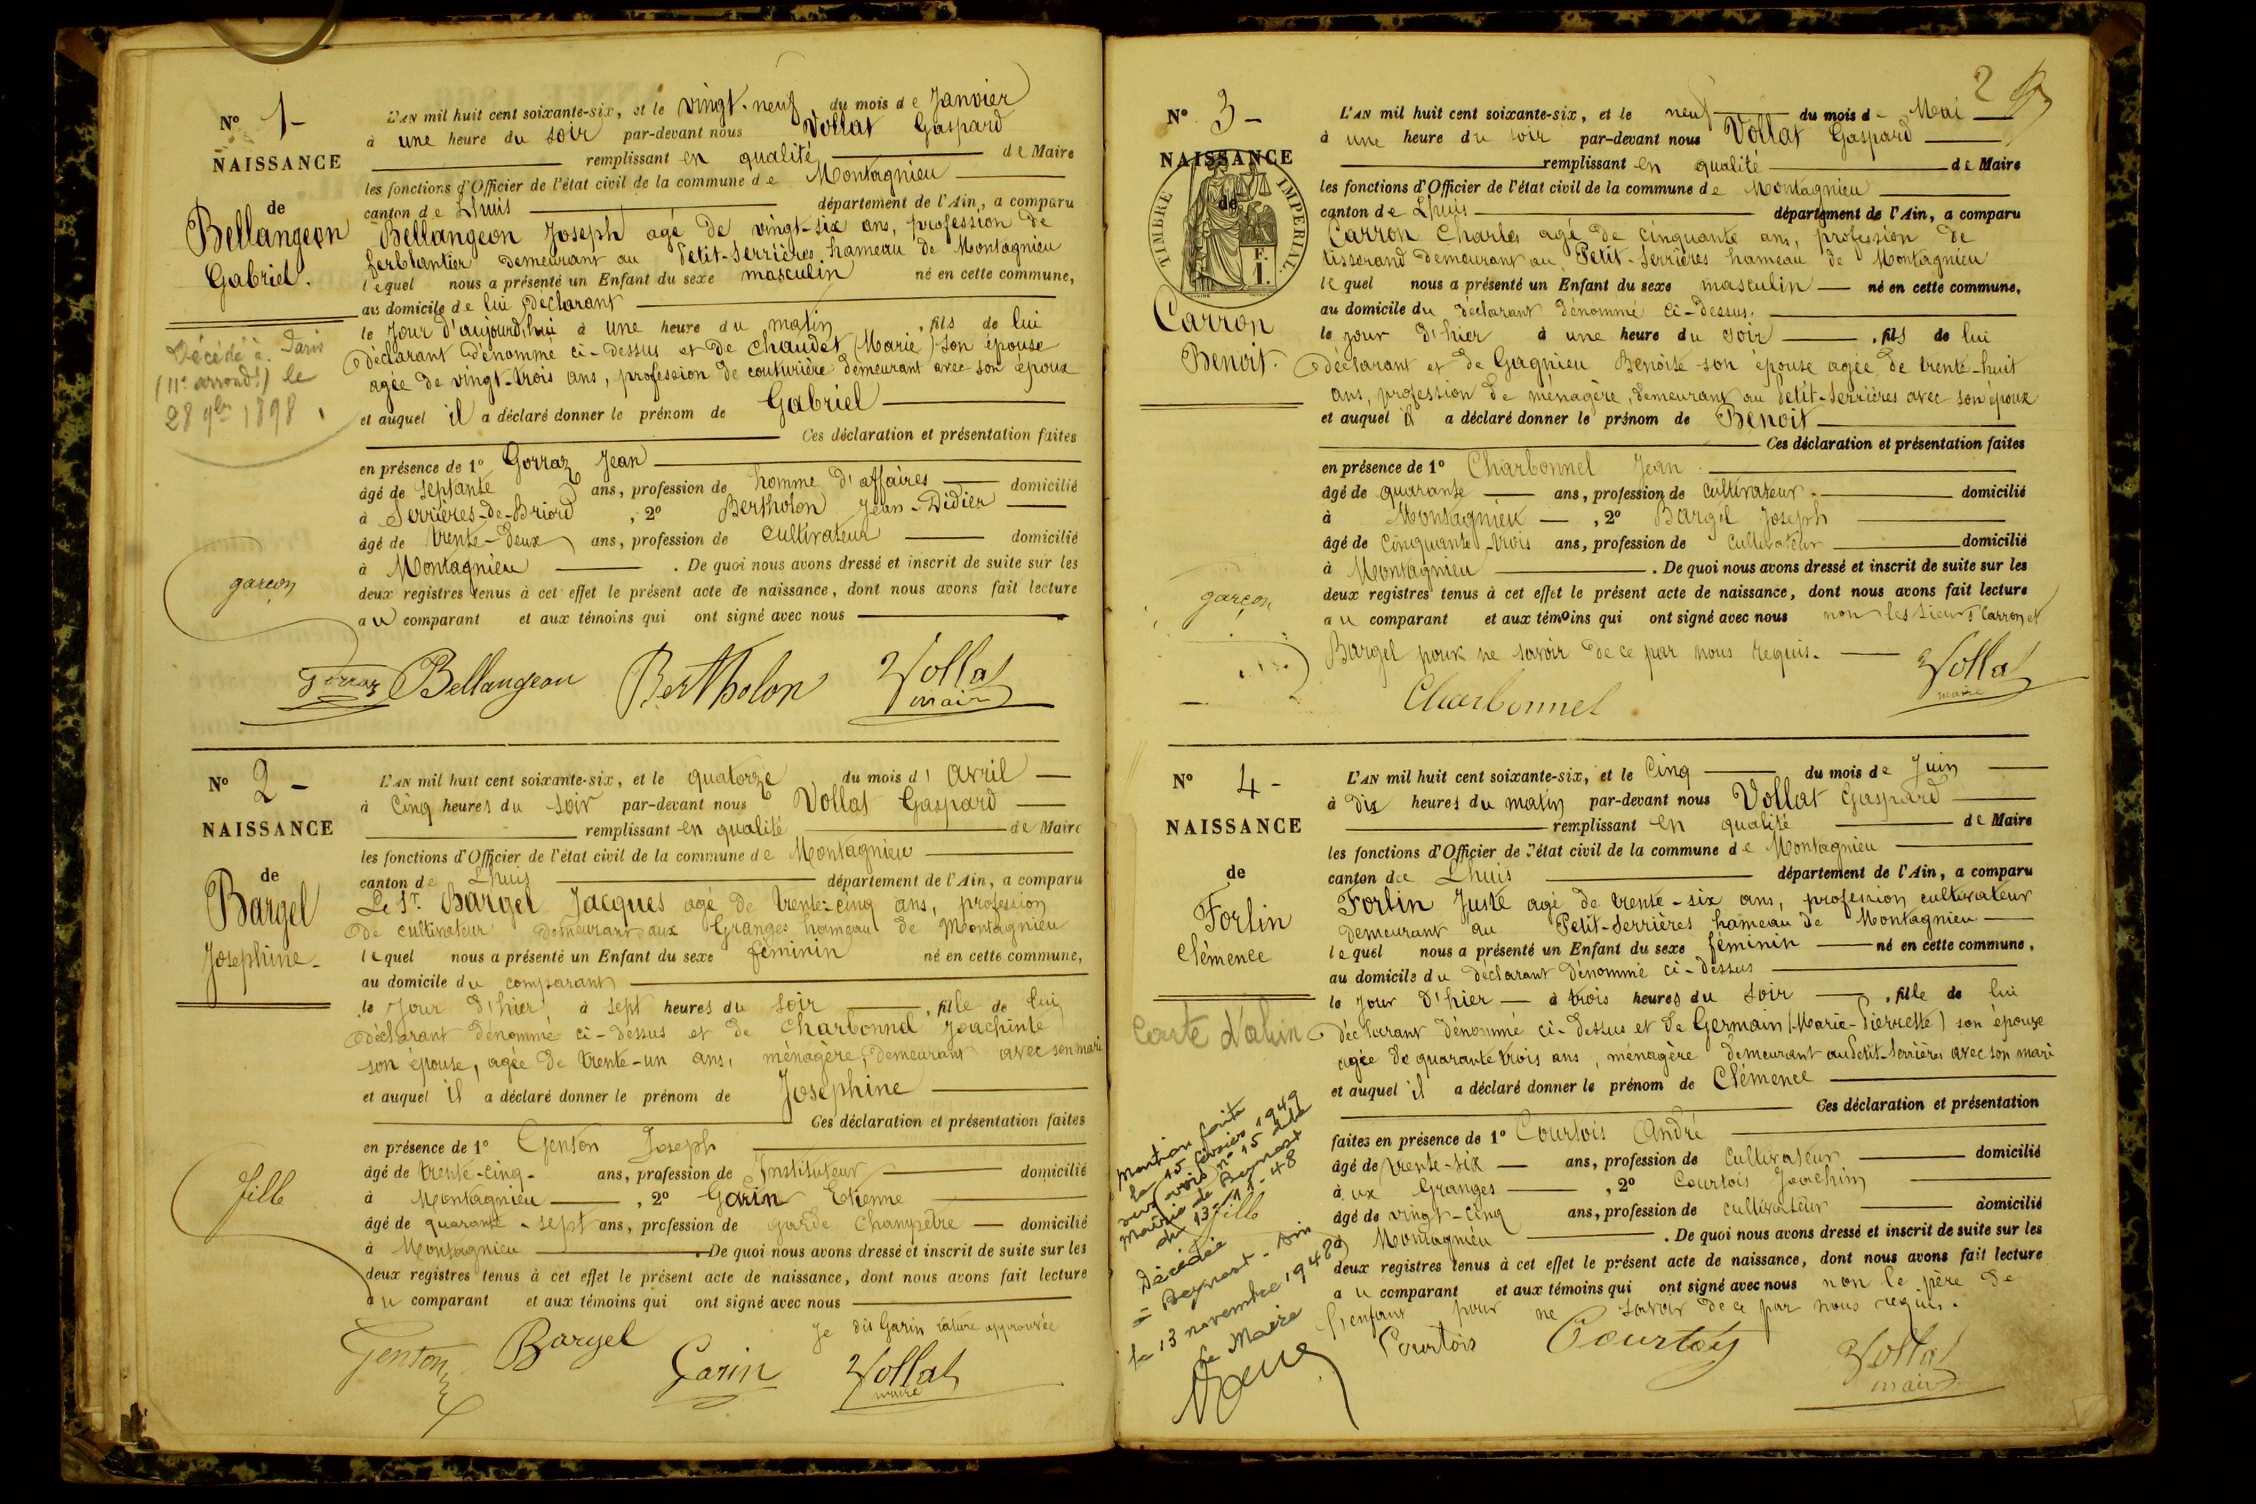 N° 1 -
NAISSANCE
de
Bellangeon
Gabriel.
Décédé à Paris
(11e arrondt) le
28 9bre 1898
garçon
L'AN mil huit cent soixante-six, et le vingt-neuf du mois de Janvier
à une heure du soir par-devant nous Vollat Gaspard
remplissant en qualité de Maire
les fonctions d'Officier de l'état civil de la commune de Montagnieu
canton de Lhuis département de l'Ain, a comparu
Bellangeon Joseph agé de vingt-six ans, profession de
ferblantier demeurant au Petit-Serrières hameau de Montagnieu
lequel nous a présenté un Enfant du sexe masculin né en cette commune,
au domicile de lui déclarant
le jour d'aujourd'hui à une heure du matin, fils de lui
déclarant dénommé ci-dessus et de Chaudet (Marie) son épouse
agée de vingt-trois ans, profession de couturière demeurant avec son époux
et auquel il a déclaré donner le prénom de Gabriel
Ces déclaration et présentation faites
en présence de 1° Gorraz Jean
âgé de septante ans, profession de homme d'affaires domicilié
à Serrières-de-Briord, 2° Bertholon Jean-Didier
âgé de trente-deux ans, profession de cultivateur domicilié
à Montagnieu. De quoi nous avons dressé et inscrit de suite sur les
deux registres tenus à cet effet le présent acte de naissance, dont nous avons fait lecture
au comparant et aux témoins qui ont signé avec nous
Gorraz Bellangeon Bertholon Vollat
maire
N° 2 -
NAISSANCE
de
Bargel
Josephine -
fille
L'AN mil huit cent soixante-six, et le quatorze du mois d'avril
à cinq heures du soir par-devant nous Vollat Gaspard
remplissant en qualité de Maire
les fonctions d'Officier de l'état civil de la commune de Montagnieu
canton de Lhuis département de l'Ain, a comparu
Le Sr. Bargel Jacques agé de trente-cinq ans, profession
de cultivateur demeurant aux Granges hameau de Montagnieu
lequel nous a présenté un Enfant du sexe féminin né en cette commune,
au domicile du comparant
le jour d'hier à sept heures du soir, fille de lui
déclarant dénommé ci-dessus et de Charbonnel Joachinte
son épouse, agée de trente-un ans, ménagère, demeurant avec son mari
et auquel il a déclaré donner le prénom de Josephine
Ces déclaration et présentation faites
en présence de 1° Genton Joseph
âgé de trente-cinq - ans, profession de Instituteur domicilié
à Montagnieu, 2° Garin Etienne
âgé de quarante-sept ans, profession de garde champetre domicilié
à Montagnieu. De quoi nous avons dressé et inscrit de suite sur les
deux registres tenus à cet effet le présent acte de naissance, dont nous avons fait lecture
au comparant et aux témoins qui ont signé avec nous
Je dis Garin rature approuvée
Genton Bargel Garin Vollat
maire
2
N° 3 -
NAISSANCE
de
TIMBRE IMPERIAL.
F.
1.
Carron
Benoit.
garçon
L'AN mil huit cent soixante-six, et le neuf du mois de Mai
à une heure du soir par-devant nous Vollat Gaspard
remplissant en qualité de Maire
les fonctions d'Officier de l'état civil de la commune de Montagnieu
canton de Lhuis département de l'Ain, a comparu
Carron Charles agé de cinquante ans, profession de
tisserand demeurant au Petit-Serrières hameau de Montagnieu
lequel nous a présenté un Enfant du sexe masculin né en cette commune,
au domicile du déclarant dénommé ci-dessus.
le jour d'hier à une heure du soir, fils de lui
déclarant et de Gagnieu Benoite son épouse agée de trente-huit
ans, profession de ménagère, demeurant au Petit-Serrières avec son époux
et auquel il a déclaré donner le prénom de Benoit
Ces déclaration et présentation faites
en présence de 1° Charbonnel Jean
âgé de quarante ans, profession de cultivateur. domicilié
à Montagnieu, 2° Bargel Joseph
âgé de Cinquante-trois ans, profession de cultivateur domicilié
à Montagnieu. De quoi nous avons dressé et inscrit de suite sur les
deux registres tenus à cet effet le présent acte de naissance, dont nous avons fait lecture
au comparant et aux témoins qui ont signé avec nous non les sieurs Carron et
Bargel pour ne savoir de ce par nous requis.
Charbonnel Vollat
maire
N° 4 -
NAISSANCE
de
Forlin
Clémence
Carte d'alim
Mention faite
le 15 février 1949
sur avis n° 15 de la
Mairie de Beynost
du 13-11-48
fille
Décédée
à Beynost - Ain
le 13 novembre 1948
Le Maire
L'AN mil huit cent soixante-six, et le Cinq du mois de Juin
à dix heures du matin par-devant nous Vollat Gaspard
remplissant en qualité de Maire
les fonctions d'Officier de l'état civil de la commune de Montagnieu
canton de Lhuis département de l'Ain, a comparu
Forlin Juste agé de trente-six ans, profession cultivateur
demeurant au Petit-Serrières hameau de Montagnieu
lequel nous a présenté un Enfant du sexe féminin né en cette commune,
au domicile du déclarant dénommé ci-dessus
le jour d'hier à trois heures du soir, fille de lui
déclarant dénommé ci-dessus et de Germain (Marie-Pierrette) son épouse
agée de quarante trois ans, ménagère demeurant au Petit-Serrières avec son mari
et auquel il a déclaré donner le prénom de Clémence
Ces déclaration et présentation
faites en présence de 1° Courtois André
âgé de trente-six ans, profession de cultivateur domicilié
aux Granges, 2° Courtois Joachim
âgé de vingt-cinq ans, profession de cultivateur domicilié
à Montagnieu. De quoi nous avons dressé et inscrit de suite sur les
deux registres tenus à cet effet le présent acte de naissance, dont nous avons fait lecture
au comparant et aux témoins qui ont signé avec nous non le père de
l'enfant pour ne savoir de ce par nous requis.
Courtois Courtois Vollat
maire